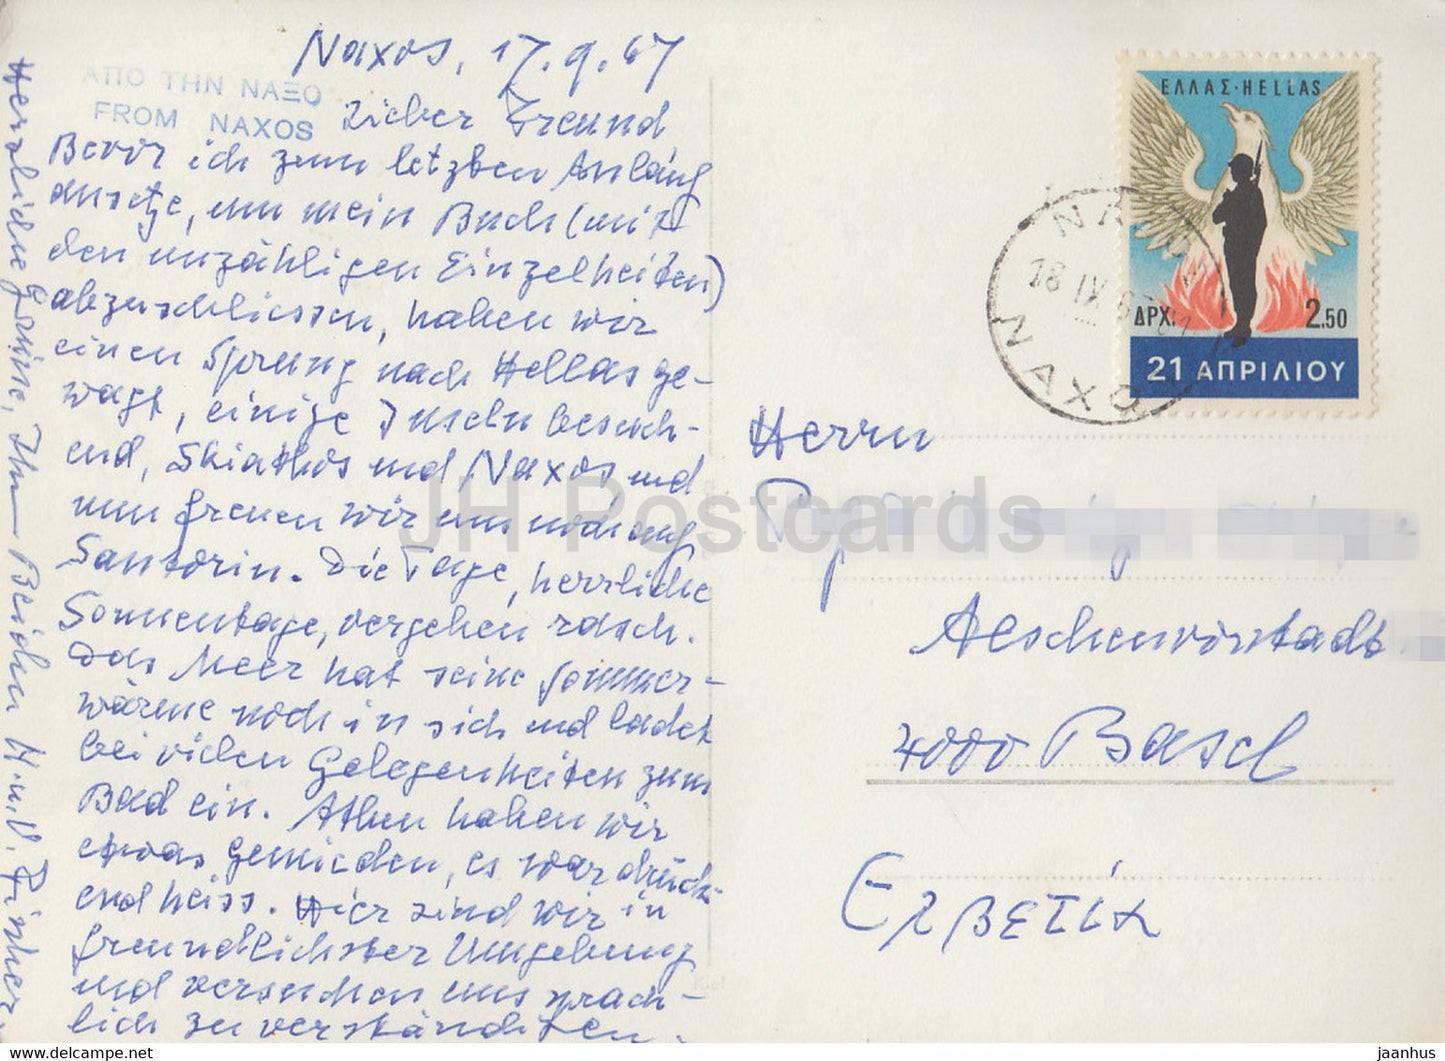 Naxos, 17.9.67
ΑΠΟ ΤΗΝ ΝΑΞΟ
FROM NAXOS
Lieber Freund
Bevor ich zum letzten Anläng
ansetze, um mein Buch (mit
den unzähligen Einzelheiten)
abzuschliessen, haben wir
einen Sprung nach Hellas ge-
wagt, einige Inseln besuch-
end, Skiathos und Naxos und
nun freuen wir uns noch auf
Santorin. Die Tage, herrliche
Sonnentage, vergehen rasch.
Das Meer hat seine Sommer-
wärme noch in sich und ladet
bei vielen Gelegenheiten zum
Bad ein. Athen haben wir
etwas gemieden, es war drück-
end heiss. Hier sind wir in
freundlichster Umgebung
und versuchen uns sprach-
lich zu verständiten.
Herzliche Grüsse, Ihnen Beiden H. u. V.
ΕΛΛΑΣ·HELLAS
ΔΡΧ. 2.50
21 ΑΠΡΙΛΙΟΥ
ΝΑΞΟΣ
18 IX 67
ΝΑΧΟ
Herrn
Aeschenvorstadt
4000 Basel
Ελβετία
JH Postcards
Kiel
jaanhus — www.delcampe.net